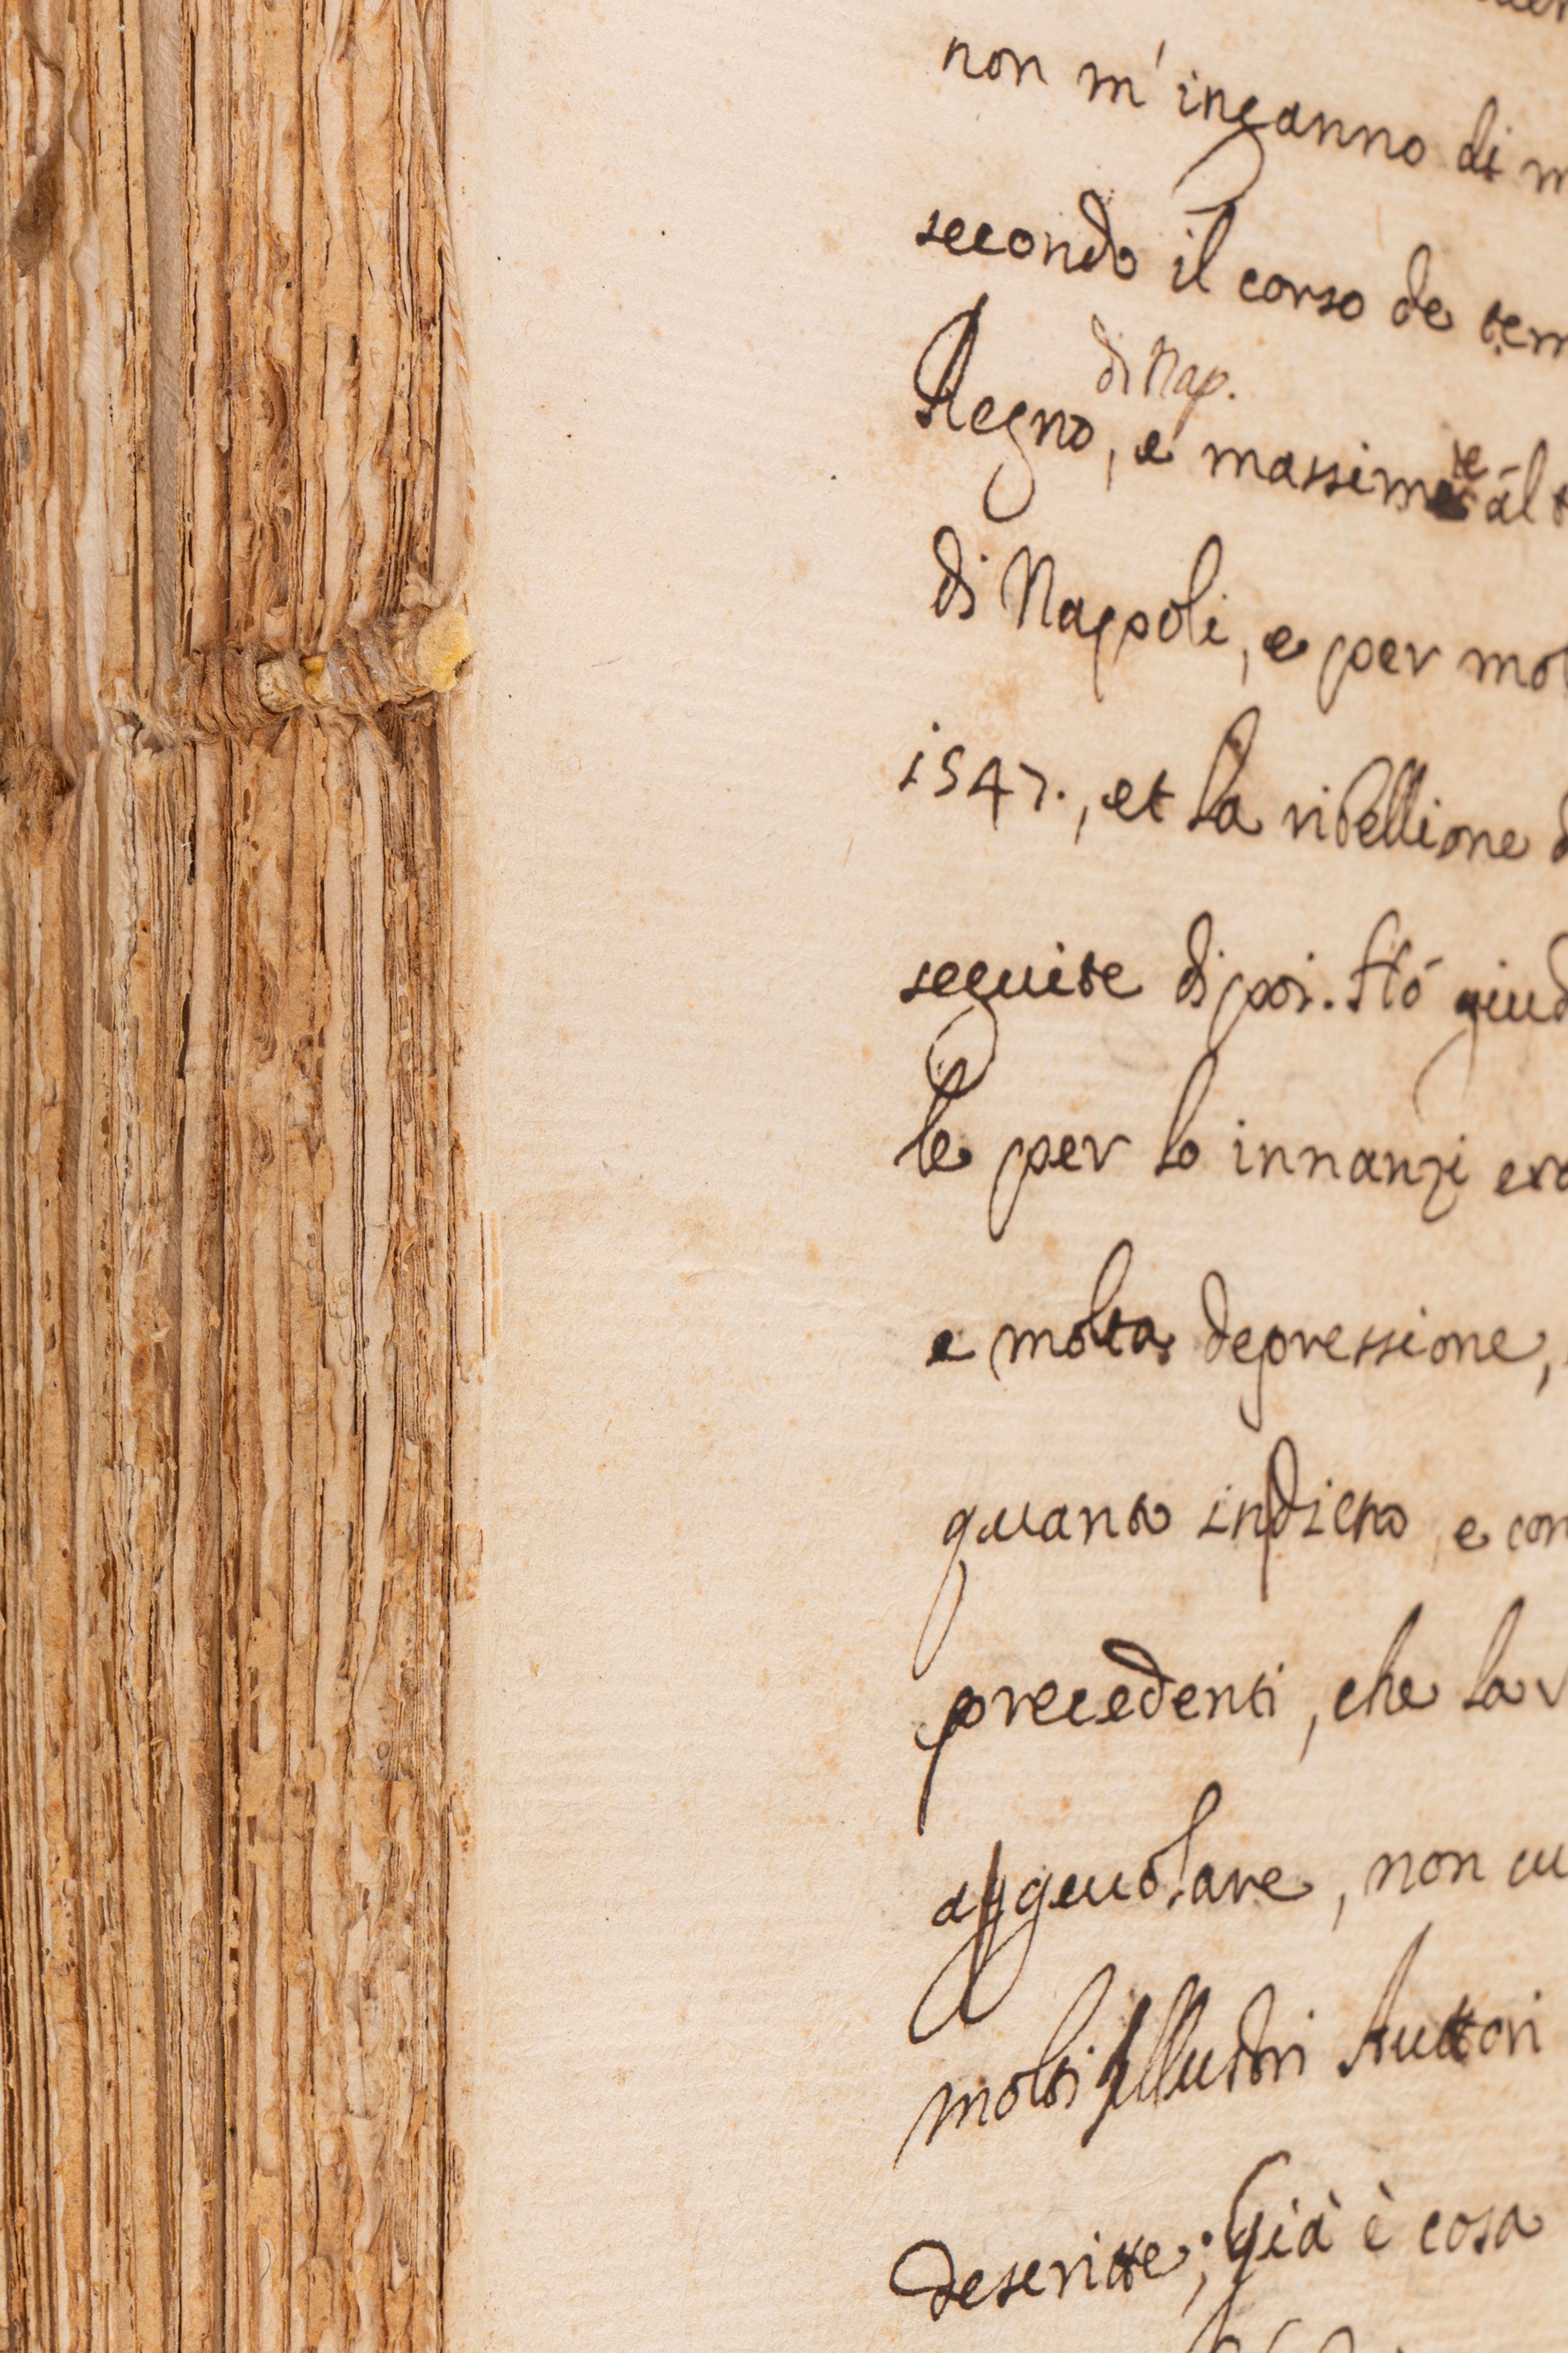 non m'inganno di m
secondo il corso de tem
di Nap.
Regno, e massime al
di Napoli, e per mol
1547., et la ribellione d
seguite di poi. Hó giud
le per lo innanzi era
e molta depressione,
quanto indietro e con
precedenti, che la v
aggevolare, non cu
molti Illustri Auttori
descritte; Già è cosa